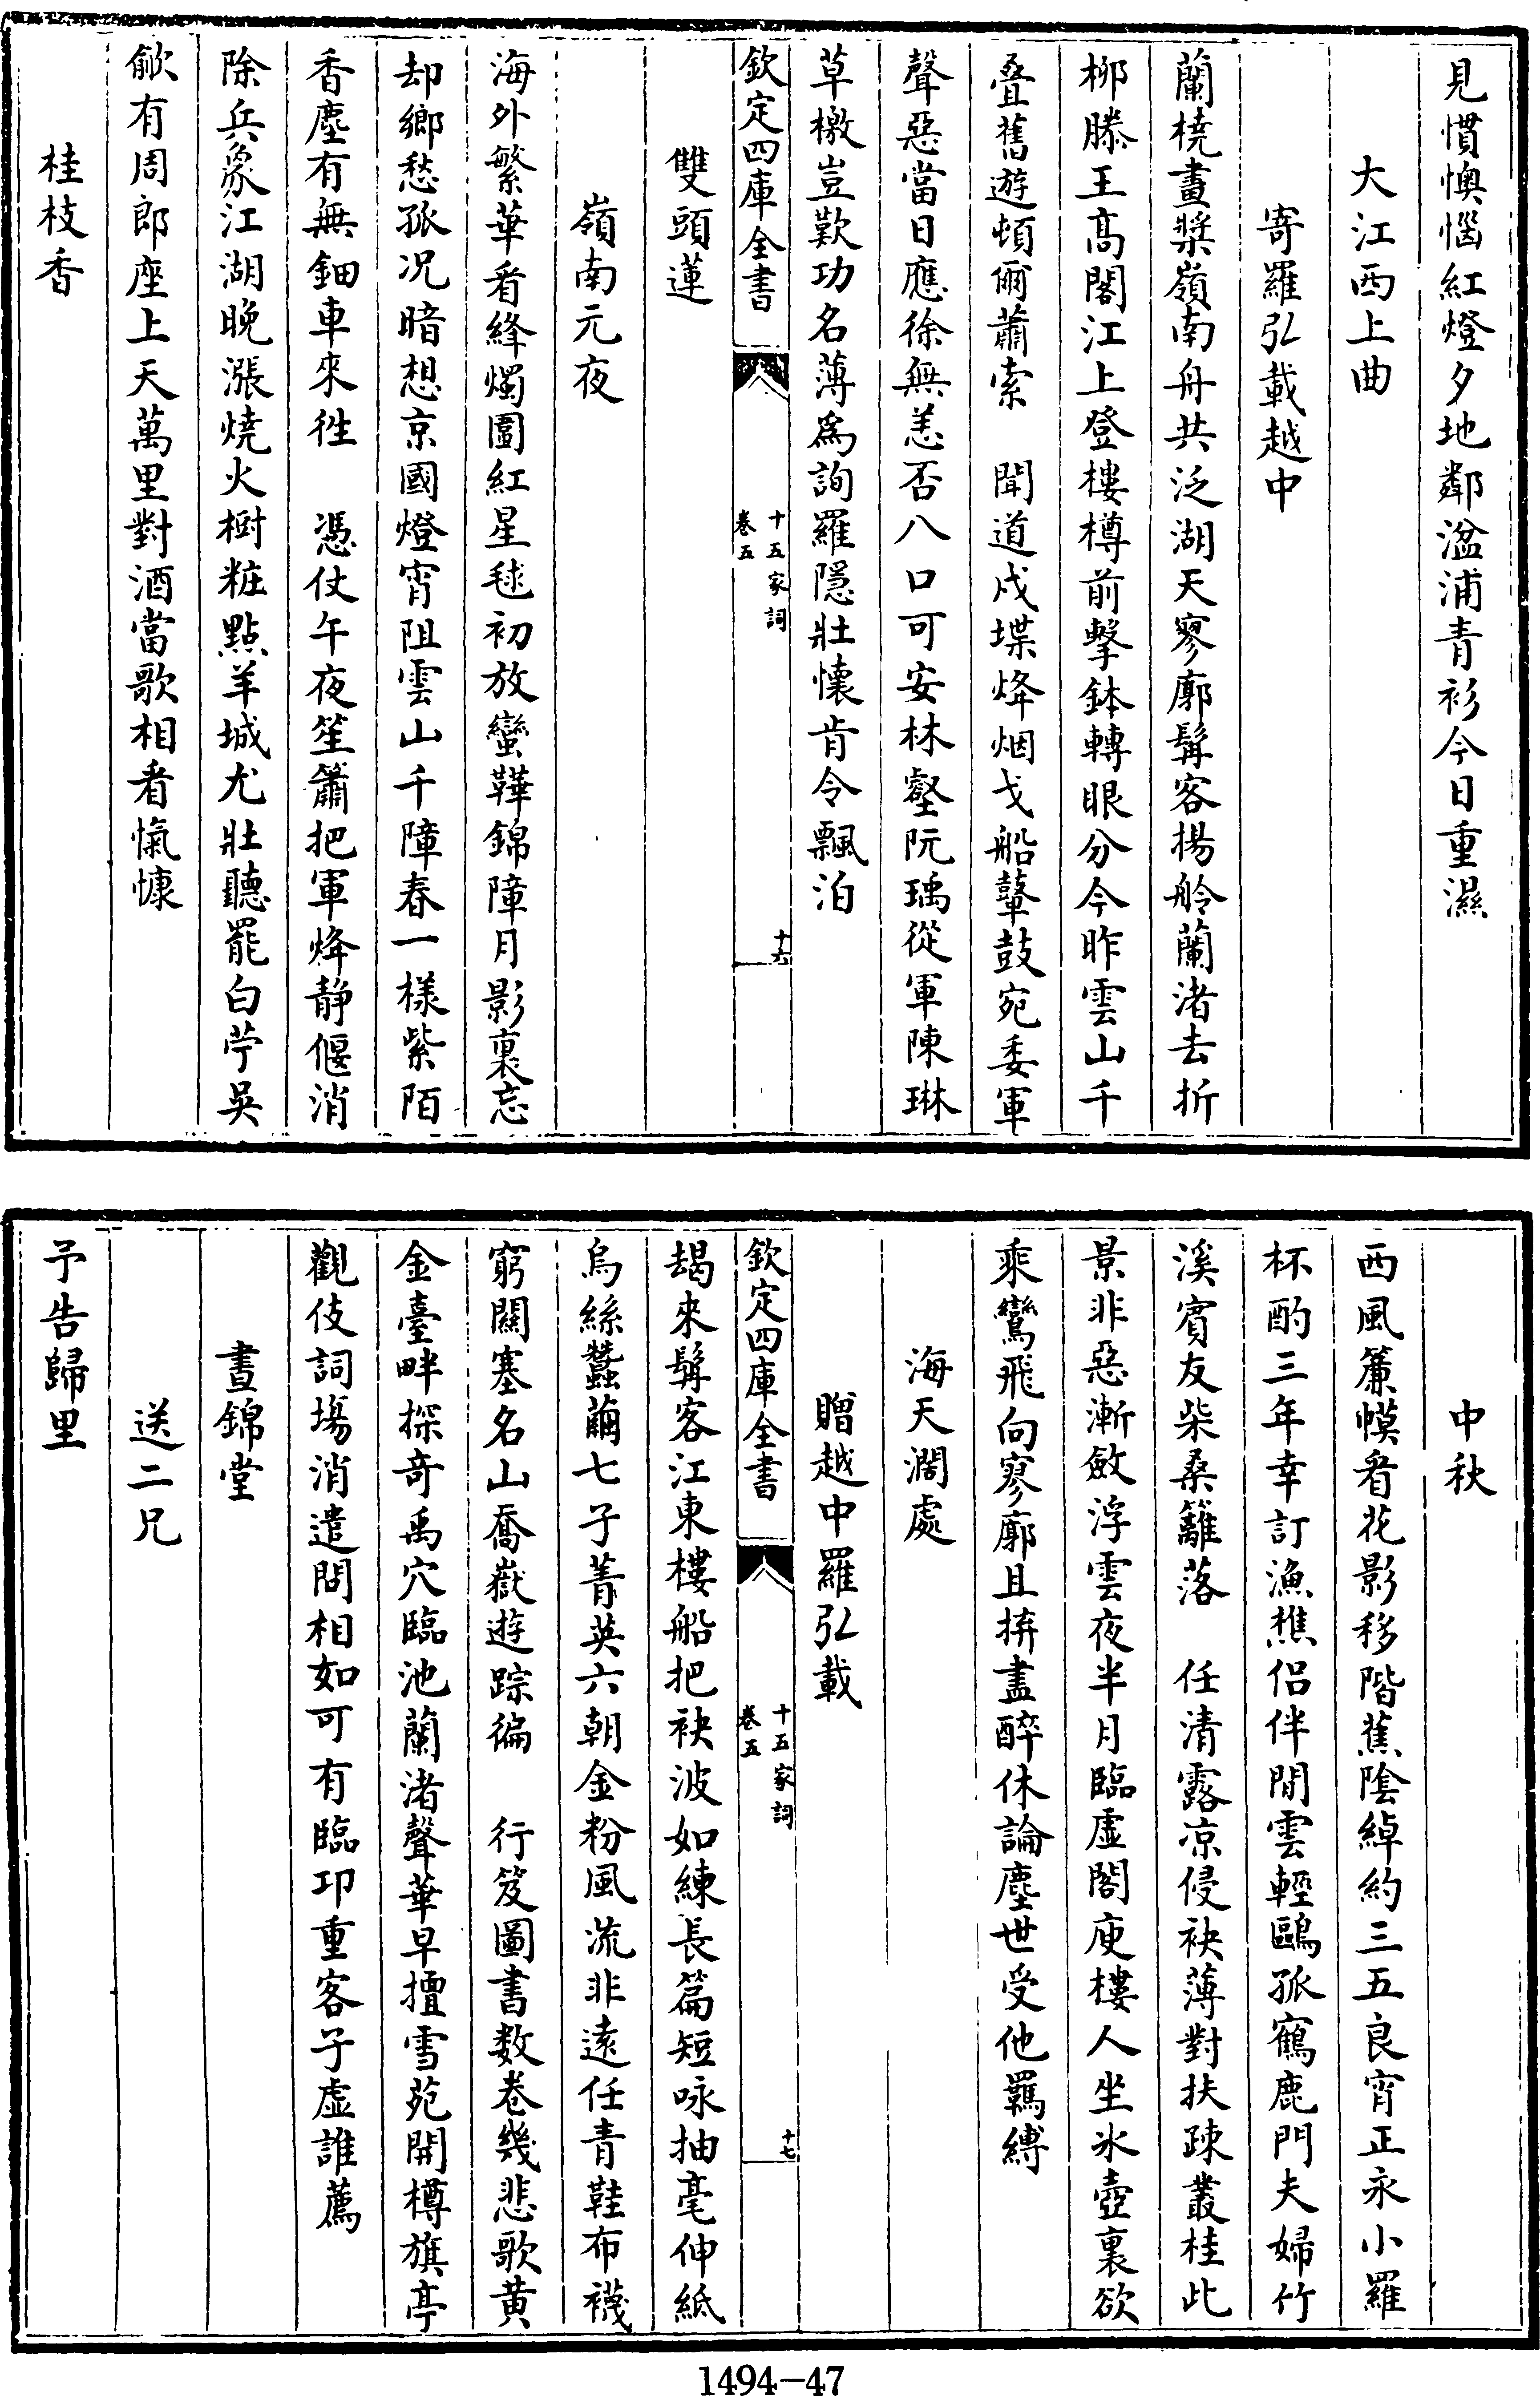 見慣懊惱紅燈夕地鄰湓浦青衫今日重濕
大江西上曲
寄羅弘載越中
蘭橈畫槳嶺南舟共泛湖天寥廓髯客揚舲蘭渚去折
桞滕王髙閣江上登樓樽前擊鉢轉眼分今昨雲山千
疊舊遊頓爾蕭索　聞道戍堞烽烟戈船鼙鼓宛委軍
聲惡當日應徐無恙否八口可安林壑阮瑀從軍陳琳
草檄豈歎功名薄為詢羅隱壯懷肯令飄泊
欽定四庫全書
十五家詞
卷五
十六
雙頭蓮
嶺南元夜
海外繁華看絳燭圍紅星毬初放蠻鞾錦障月影裏忘
却鄉愁孤况暗想京國燈宵阻雲山千障春一樣紫陌
香塵有無鈿車來徃　憑仗午夜笙簫把軍烽静偃消
除兵象江湖晚漲燒火樹粧點羊城尤壯聽罷白苧吳
歈有周郎座上天萬里對酒當歌相看愾慷
桂枝香
中秋
西風簾幙看花影移階蕉陰綽約三五良宵正永小羅
杯酌三年幸訂漁樵侣伴閒雲輕鷗孤鶴鹿門夫婦竹
溪賓友柴桑籬落　任清露凉侵袂薄對扶疎叢桂此
景非惡漸斂浮雲夜半月臨虚閣庾樓人坐氷壺裏欲
乘鸞飛向寥廓且拚盡醉休論塵世受他羈縛
海天濶處
贈越中羅弘載
欽定四庫全書
十五家詞
卷五
十七
朅來髯客江東樓船把袂波如練長篇短咏抽毫伸紙
烏絲蠶繭七子菁英六朝金粉風流非逺任青鞋布襪
窮闗塞名山喬嶽遊踪徧　行笈圖書数卷幾悲歌黄
金臺畔探竒禹穴臨池蘭渚聲華早擅雪苑開樽旗亭
觀伎詞場消遣問相如可有臨卭重客子虚誰薦
晝錦堂
送二兄
予告歸里
1494-47